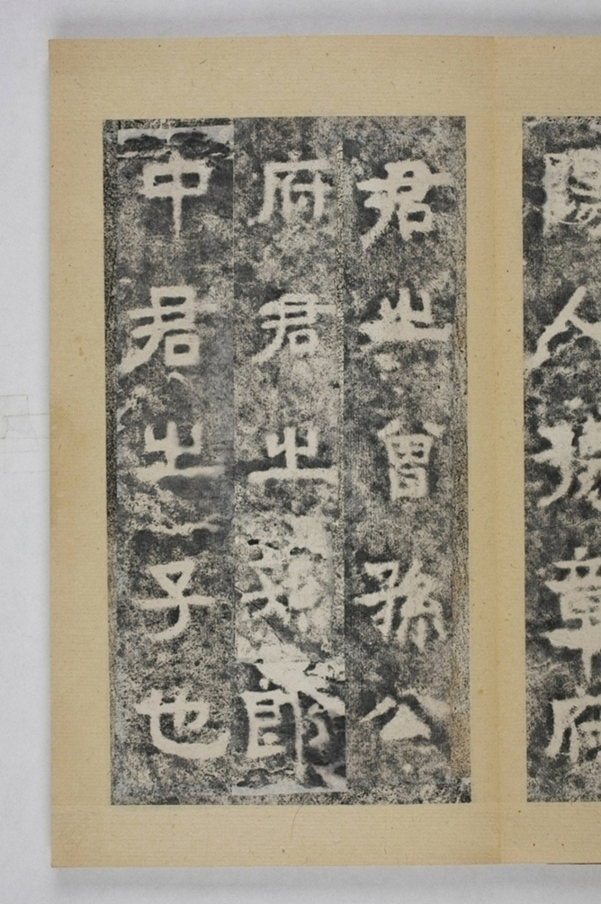 陽人豫章府
君之曾孫公
府君之孫郎
中君之子也